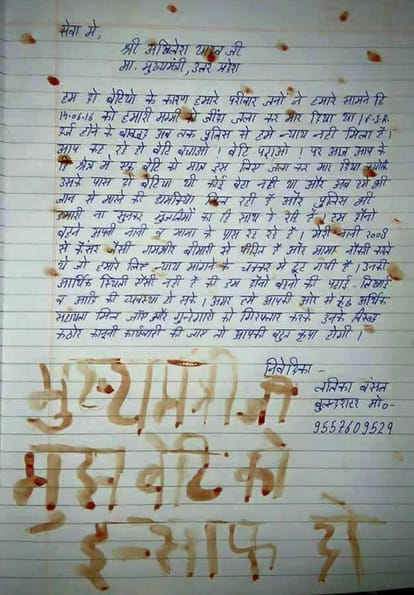 सेवा मे,
श्री अखिलेश यादव जी
मा. मुख्यमंत्री, उत्तर प्रदेश
हम दो बेटियो के कारण हमारे परिवार जनों ने हमारे सामने दि
14-06-16 को हमारी मम्मी को जिंदा जला कर मार दिया था। F.I.R
दर्ज होने के बावजूद अब तक पुलिस से हमे न्याय नही मिला है।
आप कह रहे हो बेटी बचाओ। बेटि पढ़ाओ। पर आज आप के
हि क्षेत्र मे एक बेटी को मात्र इस लिए जला कर मार दिया क्योंकि
उसके पास दो बेटिया थी कोई बेटा नही था और अब हमे भी
जान से मारने की धमकिया मिल रही है और पुलिस भी
हमारी ना सुनकर मुजरिमों का हि साथ दे रही है। हम दोनो
बहने अपनी नानी व मामा के पास रह रहे है। मेरी नानी 2008
से कैंसर जैसी गम्भीर बीमारी से पीड़ित है और मामा नौकरी करते
थे जो हमारे लिए न्याय मांगने के चक्कर मे छूट गयी है। उनकी
आर्थिक स्थिति ऐसी नही है की हम दोनो बहनो की पढाई - लिखाई
व आदि की व्यवस्था हो सके। अगर हमे आपकी ओर से कुछ आर्थिक
सहायता मिल जाए और गुनेगारो को गिरफ्तार करके उनके विरूद्ध
कठोर कानूनी कार्यवाही की जाए तो आपकी बहुत कृपा होगी।
निवेदिका -
लतिका बंसल
बुलन्दशहर मो०-
9557609529
मुख्यमंत्री जी
मुझ बेटि को
इन्साफ दो